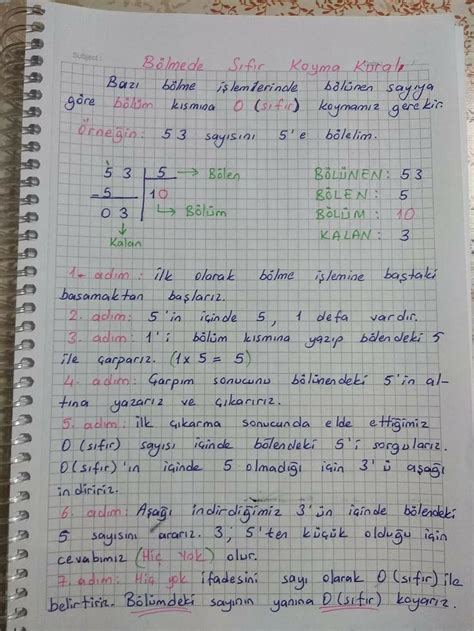 Subject:
Bölmede Sıfır Koyma Kuralı
Bazı bölme işlemlerinde bölünen sayıya
göre bölüm kısmına 0 (sıfır) koymamız gerekir.
Örneğin: 53 sayısını 5'e bölelim.
53 | 5 → Bölen
-5 | 10
03 → Bölüm
Kalan
BÖLÜNEN: 53
BÖLEN: 5
BÖLÜM: 10
KALAN: 3
1. adım: İlk olarak bölme işlemine baştaki
basamaktan başlarız.
2. adım: 5'in içinde 5, 1 defa vardır.
3. adım: 1'i bölüm kısmına yazıp bölendeki 5
ile çarparız. (1x5=5)
4. adım: Çarpım sonucunu bölünendeki 5'in al-
tına yazarız ve çıkarırız.
5. adım: İlk çıkarma sonucunda elde ettiğimiz
0 (sıfır) sayısı içinde bölendeki 5'i sorgularız.
0 (sıfır)'ın içinde 5 olmadığı için 3'ü aşağı
indiririz.
6. adım: Aşağı indirdiğimiz 3'ün içinde bölendeki
5 sayısını ararız. 3, 5'ten küçük olduğu için
cevabımız (Hiç Yok) olur.
7. adım: Hiç yok ifadesini sayı olarak 0 (sıfır) ile
belirtiriz. Bölümdeki sayının yanına 0 (sıfır) koyarız.